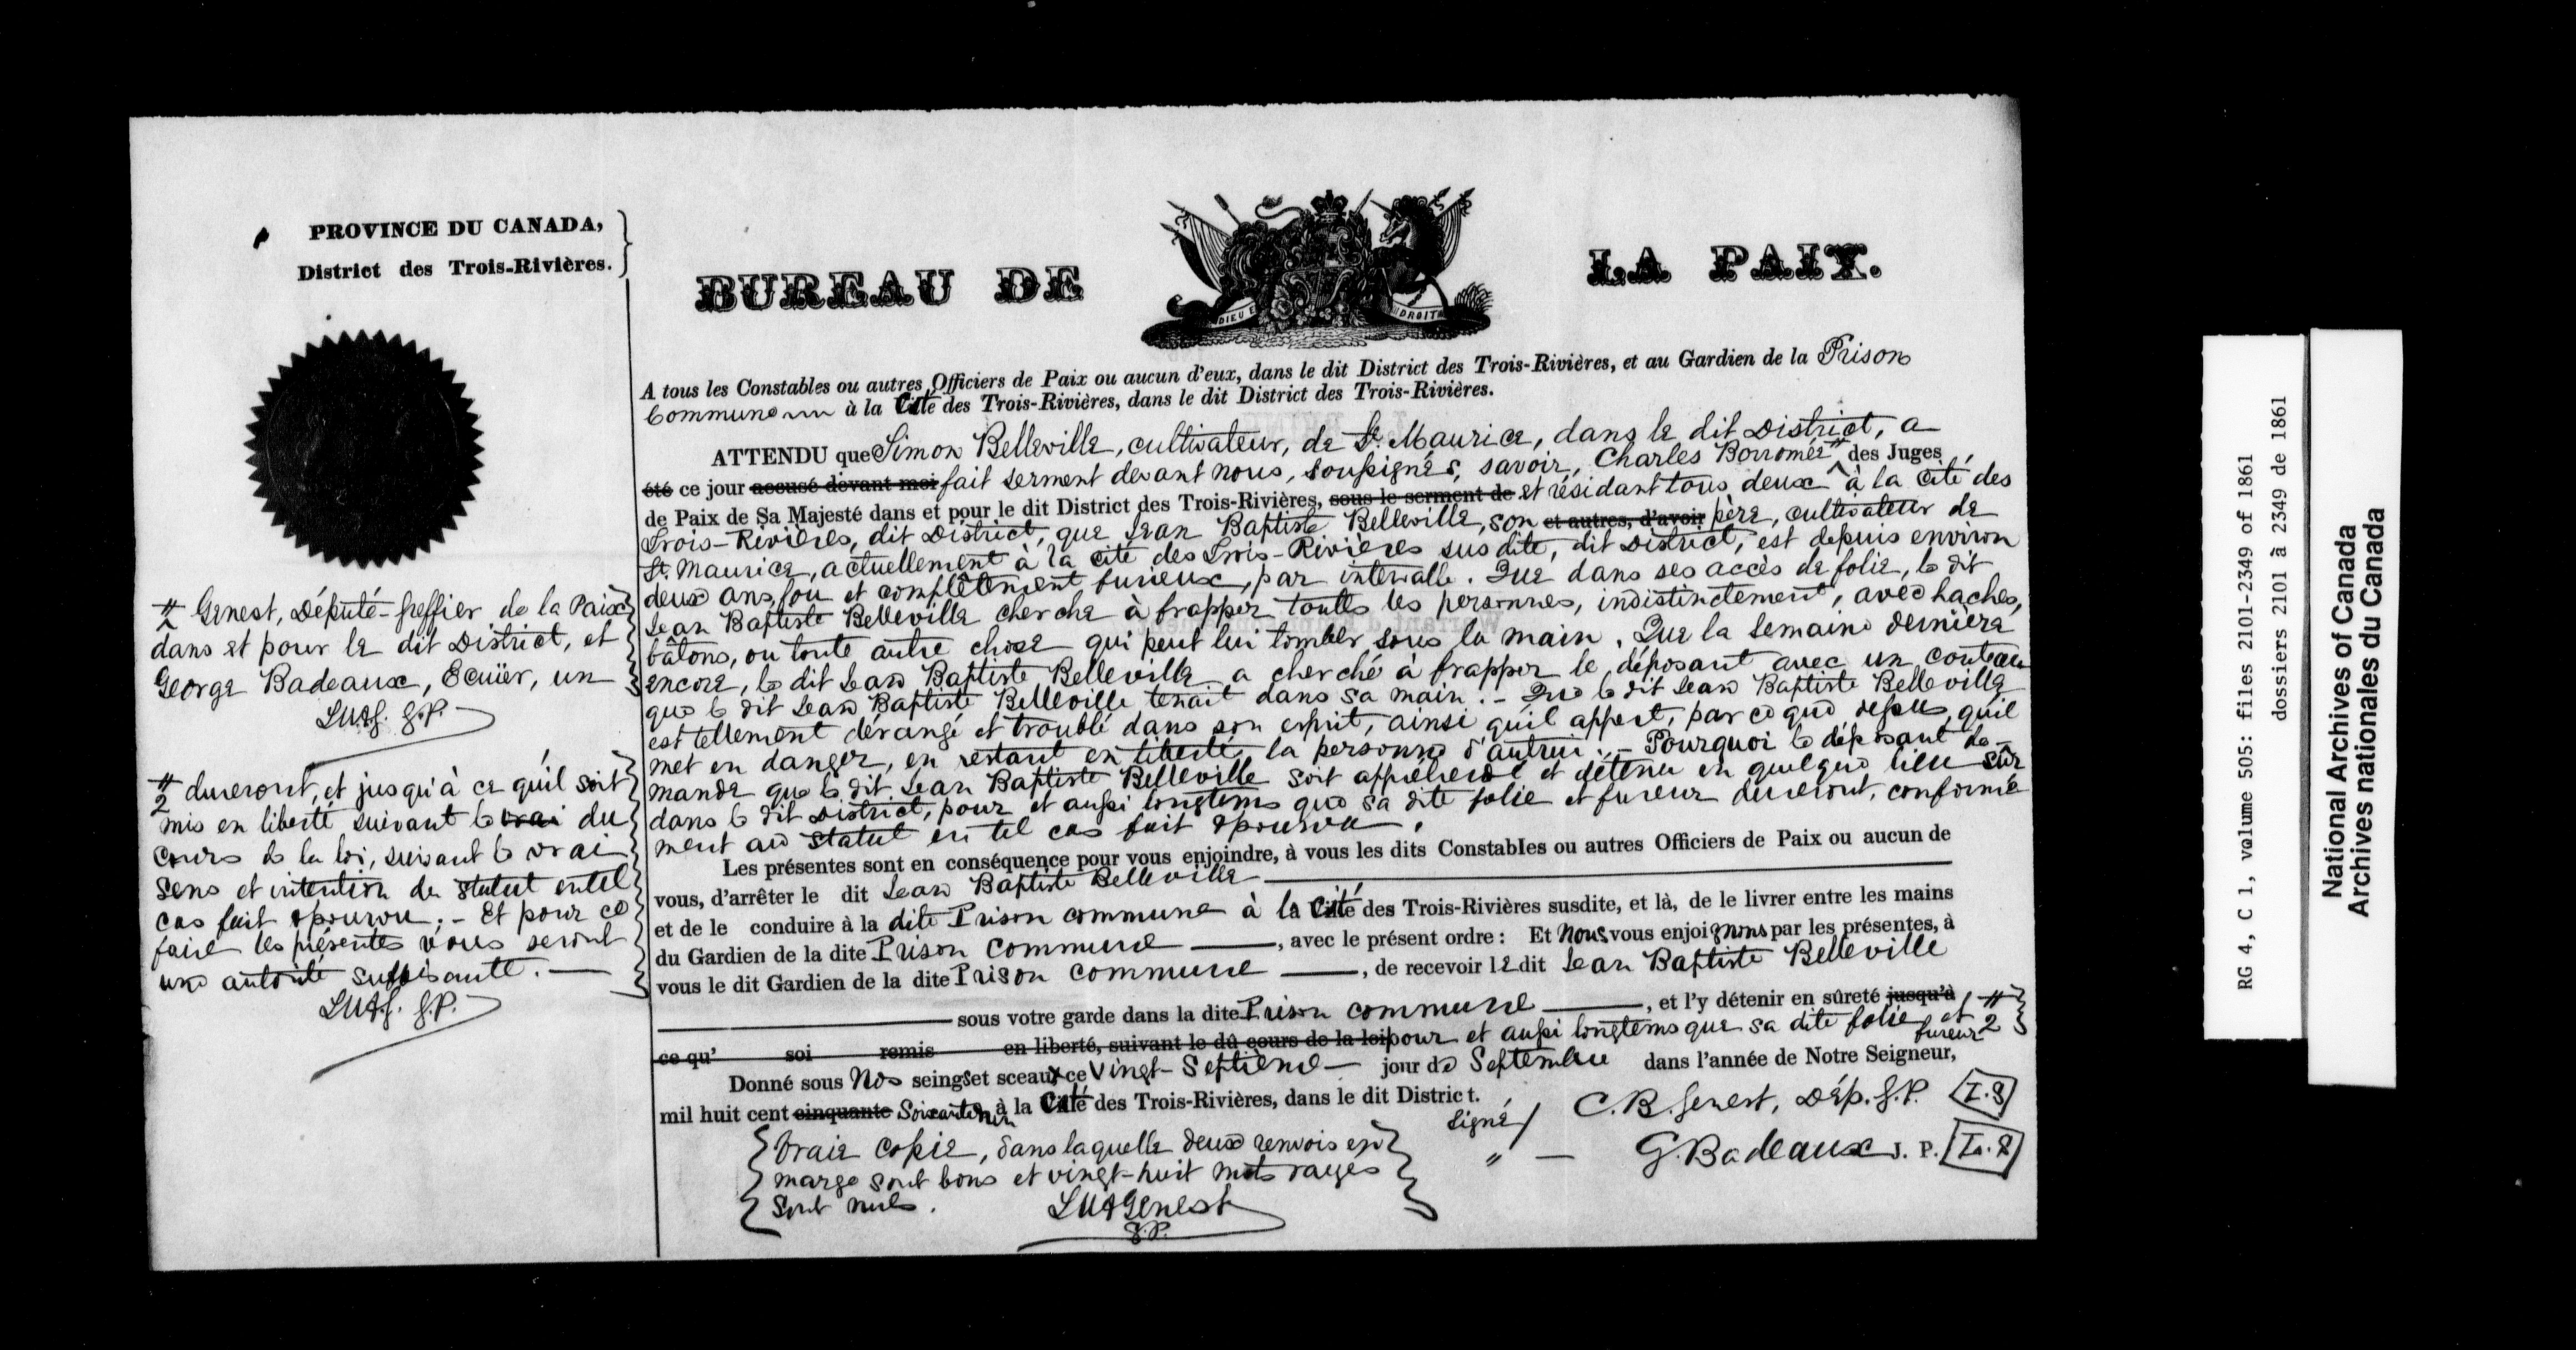 PROVINCE DU CANADA,
District des Trois-Rivières.
BUREAU DE LA PAIX.
DIEU E DROIT
A tous les Constables ou autres Officiers de Paix ou aucun d'eux, dans le dit District des Trois-Rivières, et au Gardien de la Prison
Commune à la Cité des Trois-Rivières, dans le dit District des Trois-Rivières.
ATTENDU que Simon Belleville, cultivateur, de St. Maurice, dans le dit District, a
été ce jour accusé devant moi fait serment devant nous, soussignés, savoir, Charles Borromée # des Juges
de Paix de Sa Majesté dans et pour le dit District des Trois-Rivières, sous le serment de et résidant tous deux à la Cité des
Trois-Rivières, dit District, que Jean Baptiste Belleville, son et autres, d'avoir père, cultivateur de
St. Maurice, actuellement à la Cité des Trois-Rivières susdite, dit District, est depuis environ
deux ans, fou et complêtement furieux, par intervalle. Que dans ses accès de folie, le dit
Jean Baptiste Belleville cherche à frapper toutes les personnes, indistinctement, avec haches,
bâtons, ou toute autre chose qui peut lui tomber sous la main. Que la semaine dernière
encore, le dit Jean Baptiste Belleville a cherché à frapper le déposant avec un couteau
que le dit Jean Baptiste Belleville tenait dans sa main. - Que le dit Jean Baptiste Belleville
est tellement dérangé et troublé dans son esprit, ainsi qu'il appert, par ce que dessus, qu'il
met en danger, en restant en liberté, la personne d'autrui. - Pourquoi le déposant de-
mande que le dit Jean Baptiste Belleville soit appréhendé et détenu en quelque lieu sûr
dans le dit District, pour et aussi longtems que sa dite folie et fureur dureront, conformé
ment au Statut en tel cas fait & pourvu.
Les présentes sont en conséquence pour vous enjoindre, à vous les dits Constables ou autres Officiers de Paix ou aucun de
vous, d'arrêter le dit Jean Baptiste Belleville
et de le conduire à la dite Prison commune à la Cité des Trois-Rivières susdite, et là, de le livrer entre les mains
du Gardien de la dite Prison commune, avec le présent ordre: Et Nous vous enjoignons par les présentes, à
vous le dit Gardien de la dite Prison commune, de recevoir le dit Jean Baptiste Belleville
sous votre garde dans la dite Prison commune, et l'y détenir en sûreté jusqu'à
ce qu' soi remis en liberté, suivant le dû cours de la loi pour et aussi longtems que sa dite folie et fureur # 2
Donné sous Nos seings et sceaux ce Vingt-Septième jour de Septembre dans l'année de Notre Seigneur,
mil huit cent cinquante Soixante un à la Cité des Trois-Rivières, dans le dit District.
Signé/ C. B. Genest, Dép. G. P. L.S
" - G. Badeaux J. P. L.S
Vraie copie, dans laquelle deux renvois en
marge sont bons et vingt-huit mots rayés
sont nuls.
LUAGenest
G.P.
# Genest, Député-Greffier de la Paix
dans et pour le dit District, et
George Badeaux, Ecuïer, un
LUAG. G.P.
# 2 dureront, et jusqu'à ce qu'il soit
mis en liberté suivant le vrai du
Cours de la loi, suivant le vrai
sens et intention du Statut en tel
cas fait & pourvu. - Et pour ce
faire les présentes vous seront
une autorité suffisante.
LUAG. G.P.
RG 4, C 1, volume 505: files 2101-2349 of 1861
dossiers 2101 à 2349 de 1861
National Archives of Canada
Archives nationales du Canada